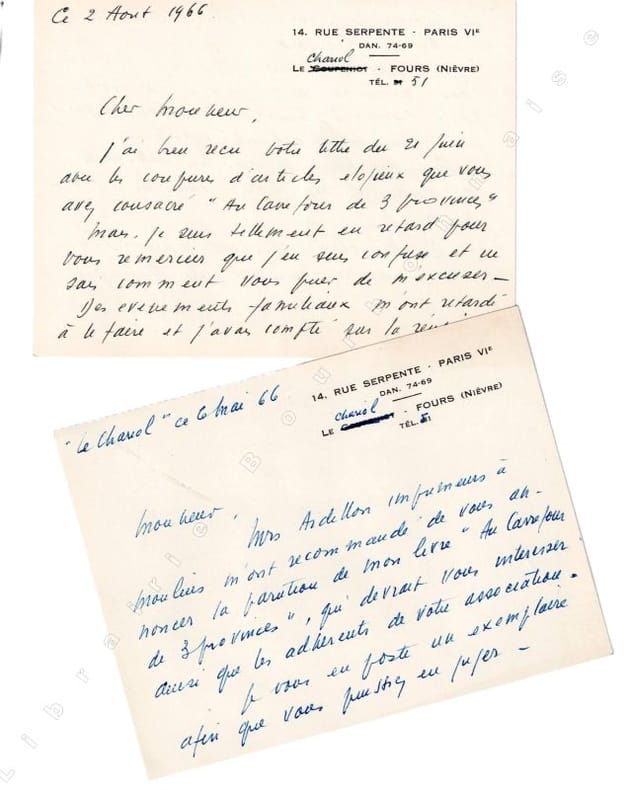 Ce 2 Aout 1966
14. RUE SERPENTE - PARIS VIE
DAN. 74-69
chariol
LE GOUPENIOT - FOURS (NIÈVRE)
TÉL. 51
Cher Monsieur,
J'ai bien recu votre lettre du 21 Juin
avec les coupures d'articles elogieux que vous
avez consacré "Au Carrefour de 3 provinces"
Mais je suis tellement en retard pour
vous remercier que j'en suis confuse et ne
sais comment vous prier de m'excuser —
Des evenements familiaux m'ont retardé
à le faire et j'avais compté sur la
14. RUE SERPENTE - PARIS VIE
DAN. 74-69
chariol
LE - FOURS (NIÈVRE)
TÉL. 51
"Le Chariol" ce 6 Mai 66
Monsieur,
Mrs imprimeurs à
Moulins m'ont recommandé de vous an-
noncer la parution de mon livre "Au Carrefour
de 3 provinces", qui devrait vous interesser
ainsi que les adherents de votre association.
Je vous en poste un exemplaire
afin que vous puissiez en juger —
Librairie Bourbonnaise ©